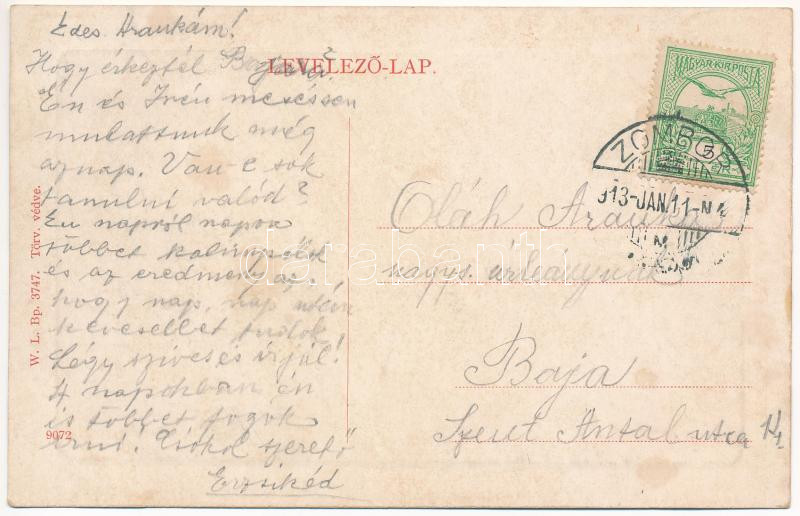 Edes Arankám!
Hogy érkeztél Bajára?
Én és Irén mesésen
mulattunk még
aznap. Van e sok
tanulni valód?
En napról napra
többet
és az eredmény az,
hogy nap, nap után
kevesebbet tudok
Légy szíves és írjál!
A napokban én
is többet fogok
irni. Csókol szerető
Erzsikéd
LEVELEZŐ-LAP.
W. L. Bp. 3747. Törv. védve.
9072
MAGYAR KIR. POSTA
ZOMBOR
913-JAN.11-N.4
Oláh Aranka
nagys. úrleánynak
Baja
Szent Antal utca
darabanth